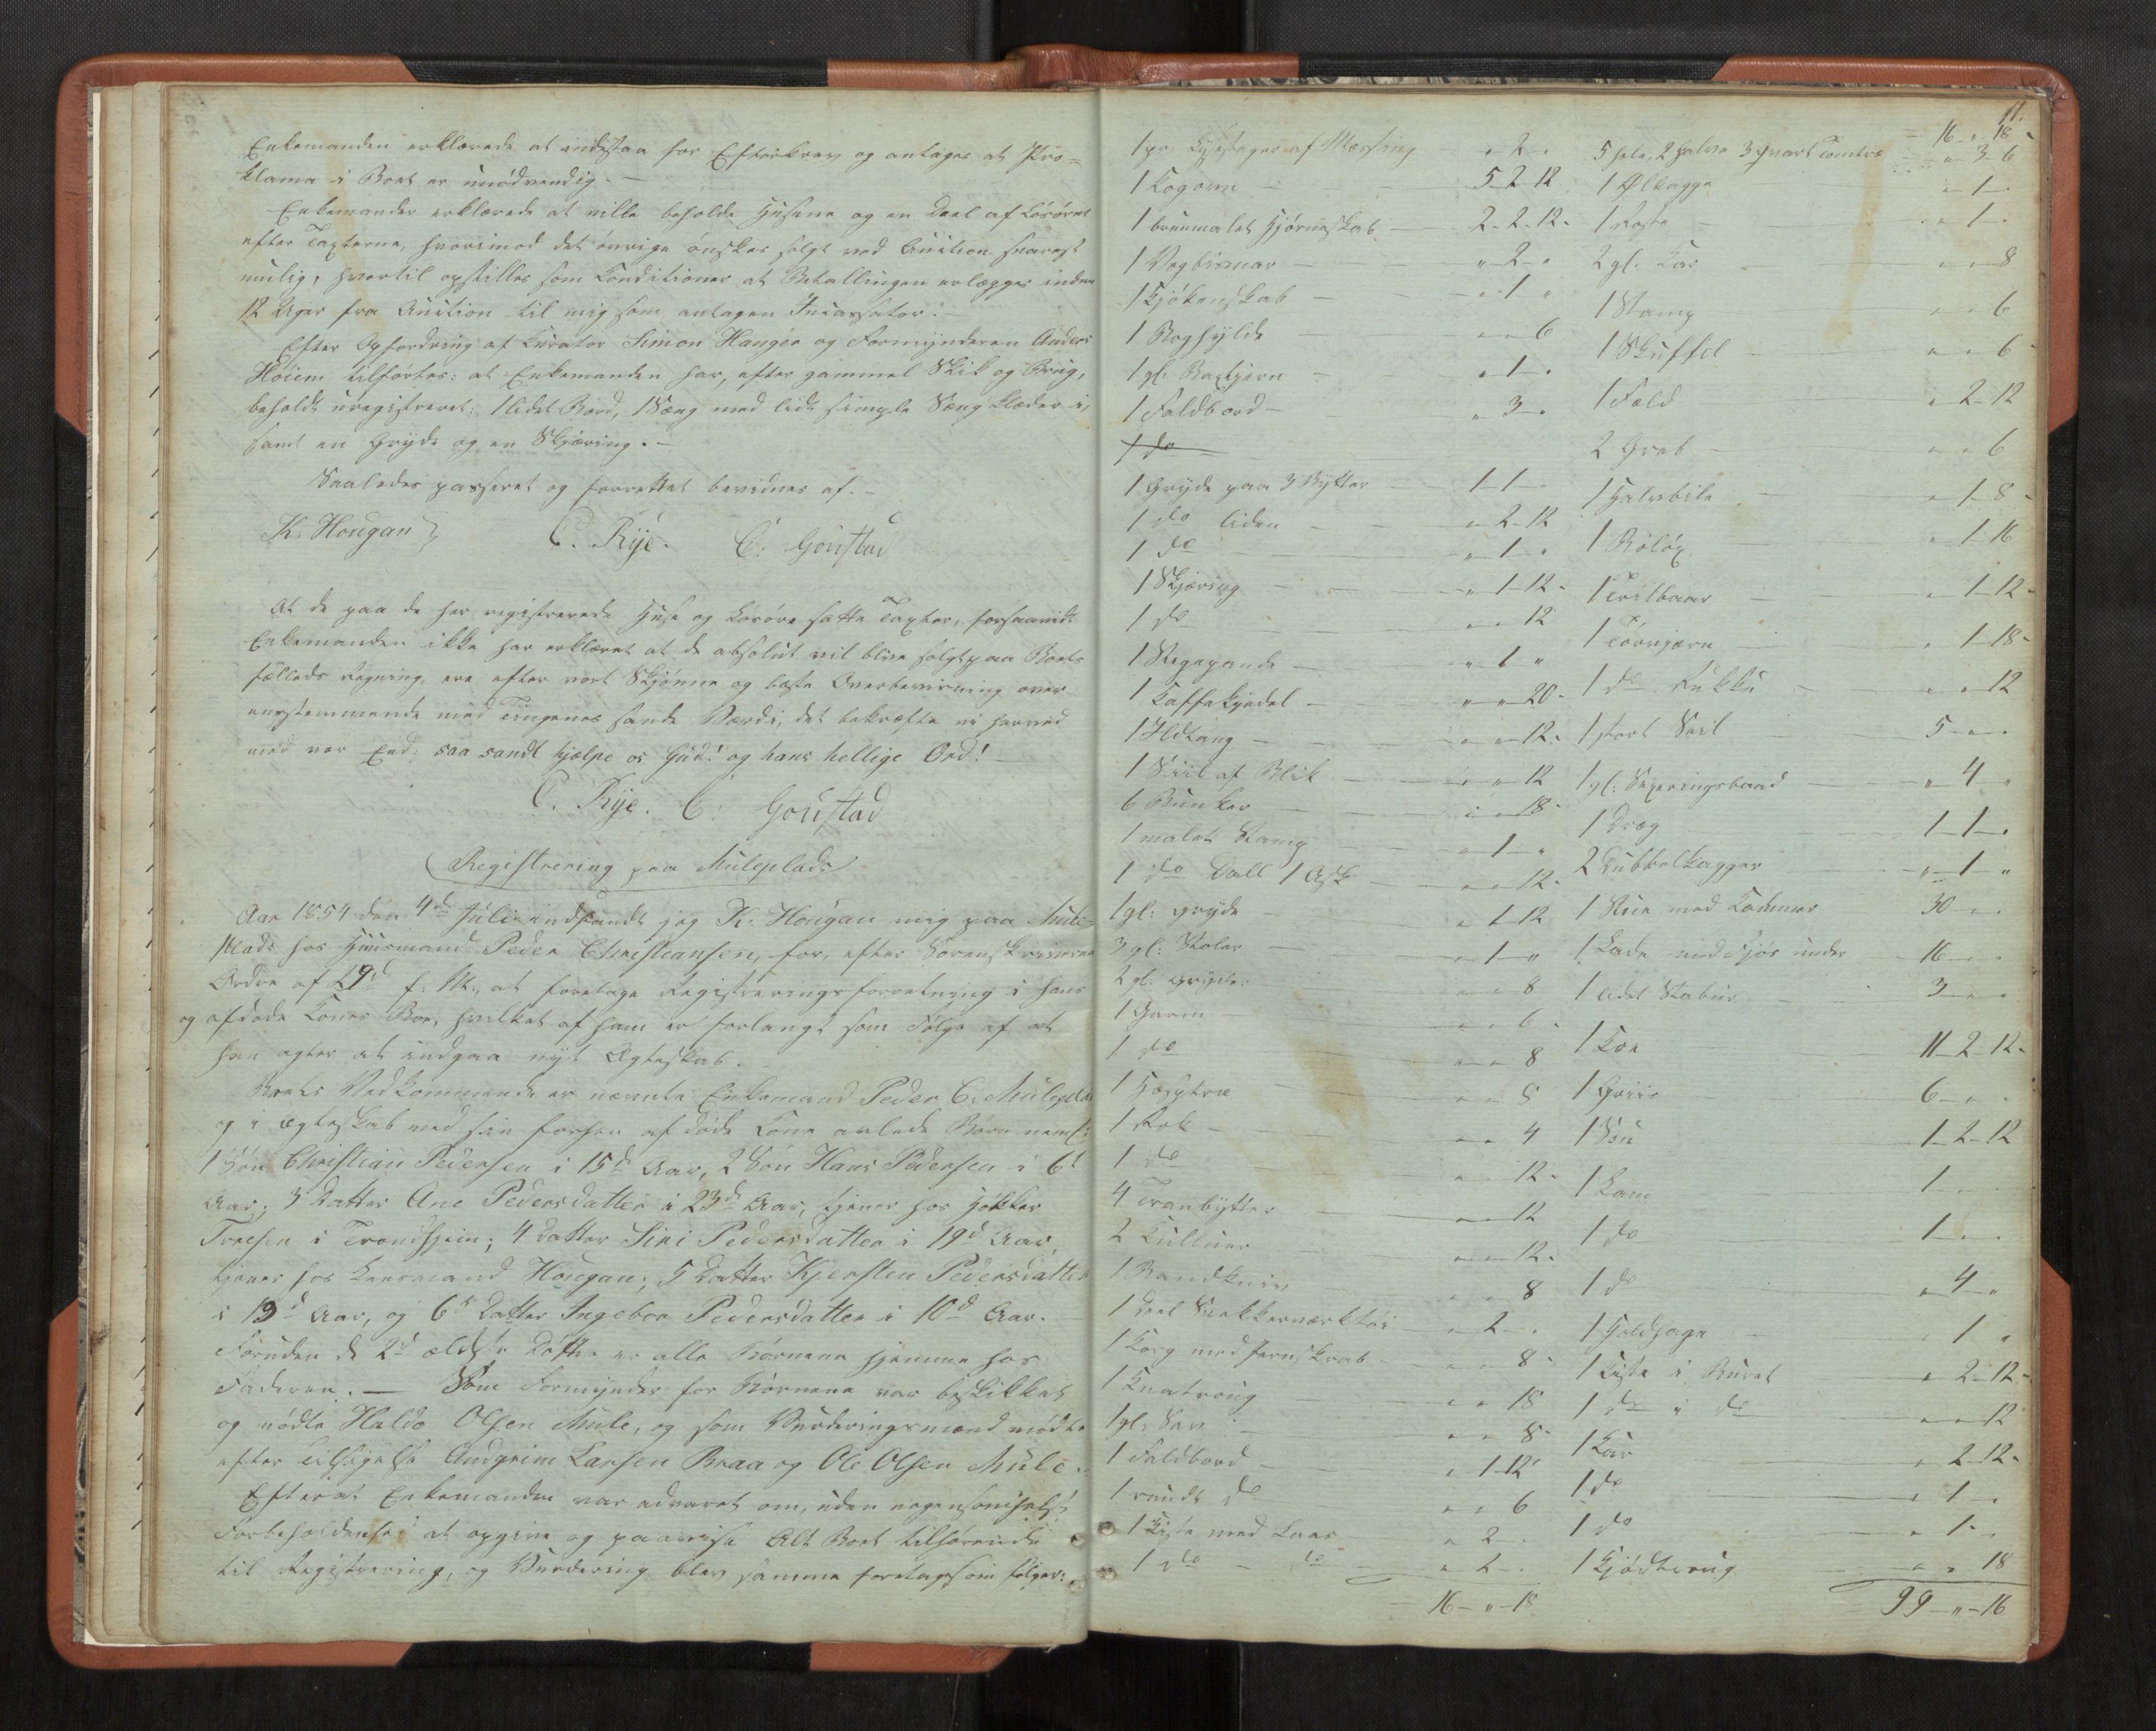 Enkemanden erklærede at indestaa for Efterkrav og antages at Pro=
klama i Boet er unödvendig. —
Enkemanden erklærede at ville beholde Husene og en Deel af Lösöret
efter Taxterne, hvorimod det övrige önskes solgt ved Auction snarest
mulig, hvortil opstilles som Conditioner at Betallingen erlægges inden
12 Uger fra Auction til mig som antagen Incassator. —
Efter Opfordring af Curator Simon Hangér og Formynderen Anders
Höiem tilförtes: at Enkemanden har, efter gammel Skik og Brug,
beholdt uregistreret: 1 lidet Bord, 1 Seng med lidt simple Seng klæder i,
samt en Gryde og en Skjæring. —
Saaledes passeret og forrettet bevidnes af. —
K. Hougan} C. Rÿe. C: Goustad
At de paa de her registrerede Huse og Lösöre satte Taxter, forsaavidt
Enkemanden ikke har erklæret at de absolut vil blive solgt paa Boets
fælleds Regning, ere efter vort Skjönne og beste Overbeviisning over-
eensstemmende med Tingenes sande Værdi, det bekræfte vi herved
med vor Eed: saa sandt hjælpe os Gud! og hans hellige Ord! —
C. Rÿe. C: Goustad
Registrering paa Muleplads
Aar 1854 den 4de Juli indfandt jeg K. Hougan mig paa Mule-
Plads hos Huusmand Peder Christiansen, for, efter Sorenskriverens
Ordre af 29d f: M:, at foretage Registreringsforretning i hans
og afdöde Kones Boe, hvilket af ham er forlangt som Fölge af at
han agter at indgaa nyt Ægteskab.
Boets Vedkommende er nævnte Enkemand Peder C. Muleplds
og i Ægteskab med sin forhen afdöde Kone avlede Börn neml:
1 Sön Christian Pedersen i 15d Aar, 2 Sön Hans Pedersen i 6t
Aar; 3 Datter Ane Pedersdatter i 23d Aar, tjener hos
i Trondhjem; 4 Datter Siri Pedersdatter i 19d Aar,
tjener hos Leensmand Hougan; 5 Datter Kjersten Pedersdatter
i 13d Aar, og 6t Datter Ingebor Pedersdatter i 10d Aar.
Foruden de 2d ældste Döttre er alle Börnene hjemme hos
Faderen. — Som Formynder for Börnene var beskikket
og mödte Haldo Olsen Mule, og som Vurderingsmænd mödte
efter Tilsigelse Andgrim Larsen Braa og Ole Olsen Mule.
Efterat Enkemanden var advaret om, uden nogensomhelst
Forbeholdenhed at opgive og paavise Alt Boet tilhörende
til Registrering, og Vurdering blev samme foretaget som fölger:
1 pr. Lysestager af Messing „ 2 „
1 Kogovn 5-2-12
1 bruunmalet Hjörneskab 2-2-12
1 Vegbismar „ 2 „
1 Kjökenskab „ 1 „
1 Boghylde „ „ 6
1 gl: Baxtjern „ 1 „
1 Foldbord „ 3 „
1 do
1 Gryde paa 3 Bytter 1-1-„
1 do liden „ 2-12
1 do „ 1 „
1 Skjæring „ 1-12
1 do „ „ 12
1 Stegepande „ 1 „
1 Kaffekjedel „ „ 20
1 Ildtang „ „ 12
1 Siil af Blik „ „ 12
6 Bunker „ „ 18
1 malet Stamp „ 1 „
1 do Dall 1 Ask „ „ 12
1 gl: Gryde „ 1-12
3 gl: Stoler „ 1 „
2 gl: Gryder „ „ 8
1 Garn „ „ 6
1 do „ „ 8
1 „ „ 8
1 Rok „ „ 4
1 do „ „ 12
4 Tranbytter „ „ 12
2 „ „ 12
1 Bandkniv „ „ 8
1 Deel Snekkerværktöi „ 2 „
1 Korg med Jernskrab „ „ 8
1 Knatroug „ „ 18
1 gl: Sav „ „ 8
1 Foldbord „ 1-12
1 rundt do „ „ 6
1 Kiste med Laas „ 2 „
1 do — do „ 2 „
16 „ 18
91.
16 „ 18
5 hele, 2 halve 3 qvart Tönder „ 3-6
1 Ölkagge „ 1 „
1 „ 1 „
2 gl. Kar „ „ 8
1 Stamp „ „ 6
1 Skuffel „ „ 6
1 Sold „ 2-12
2 Greb „ „ 6
1 Halvbile „ 1-8
1 Bolöx „ 1-16
1 Trilbaar „ 1-12
1 Törvjern „ 1-18
1 do „ „ 12
1 stort Seil 5 „ „
1 gl: Sexæringsbaad „ 4 „
1 Dreg 1-1-„
2 Dubbelkagger „ 1 „
1 Stue med Kammer 30 „ „
1 Lade med Fjös under 16 „ „
1 lidet Stabur 3 „ „
1 Koe 11-2-12
1 Griis 6 „ „
1 Sou 1-2-12
1 Lam 1 „ „
1 do 1 „ „
1 do „ 4 „
1 Holdhage „ 1 „
1 Kiste i Buret „ 2-12
1 do i do „ „ 12
1 Kar „ 2-12
1 do „ 1 „
1 do „ 1 „
1 Kjödtroug „ „ 18
99 „ 16